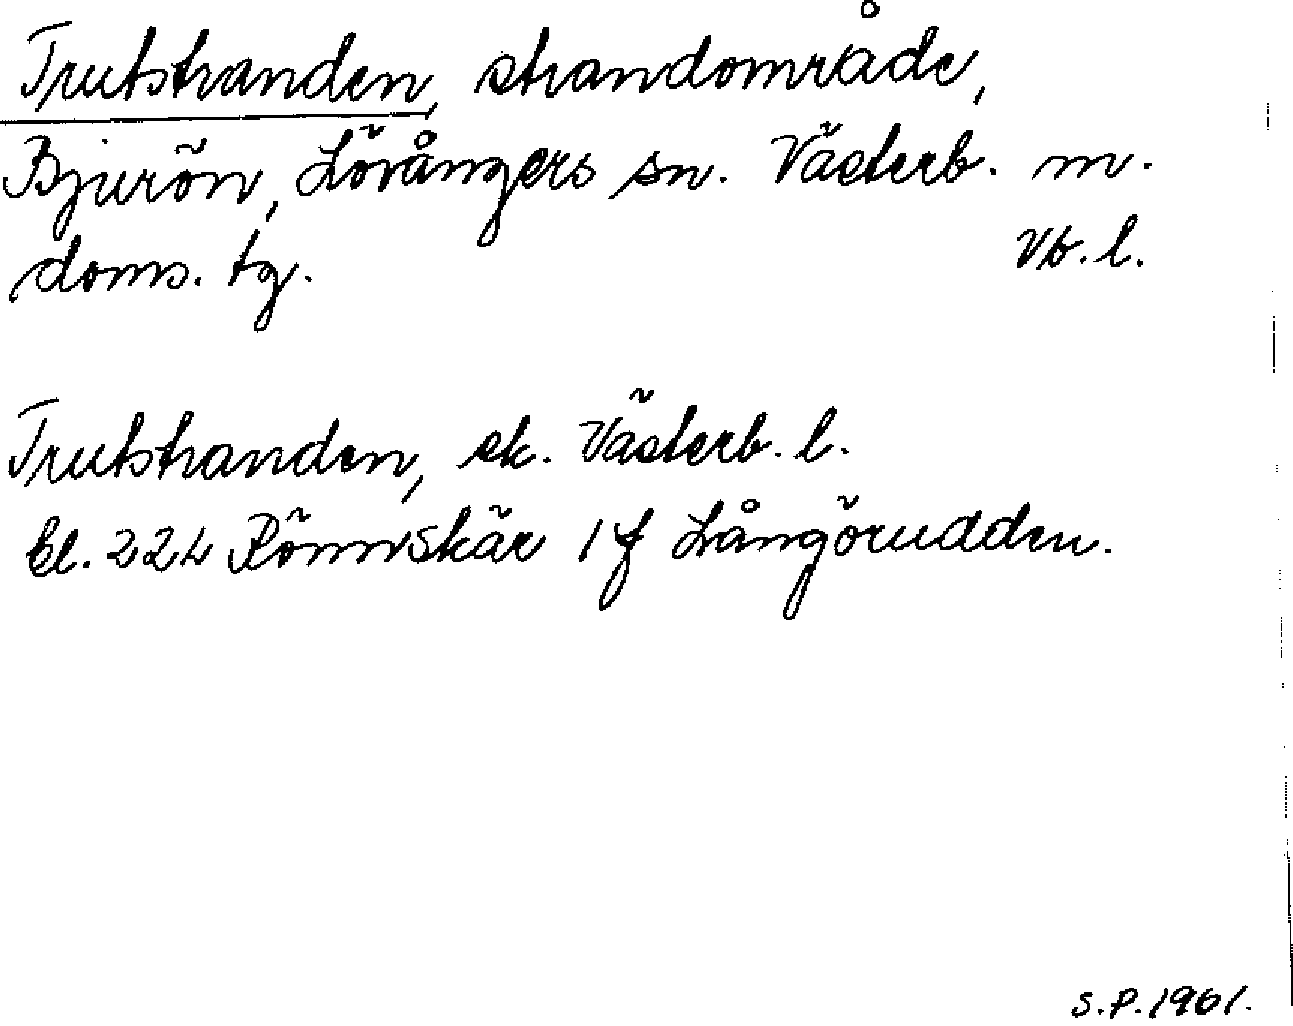 Trutstranden, strandområde,
Bjurön, Lövångers sn. Västerb. m.
doms. tg. Vb. l.
Trutstranden, ek. Västerb. l.
bl. 224 Rönnskär 1 f Långörudden.
S.P. 1961.